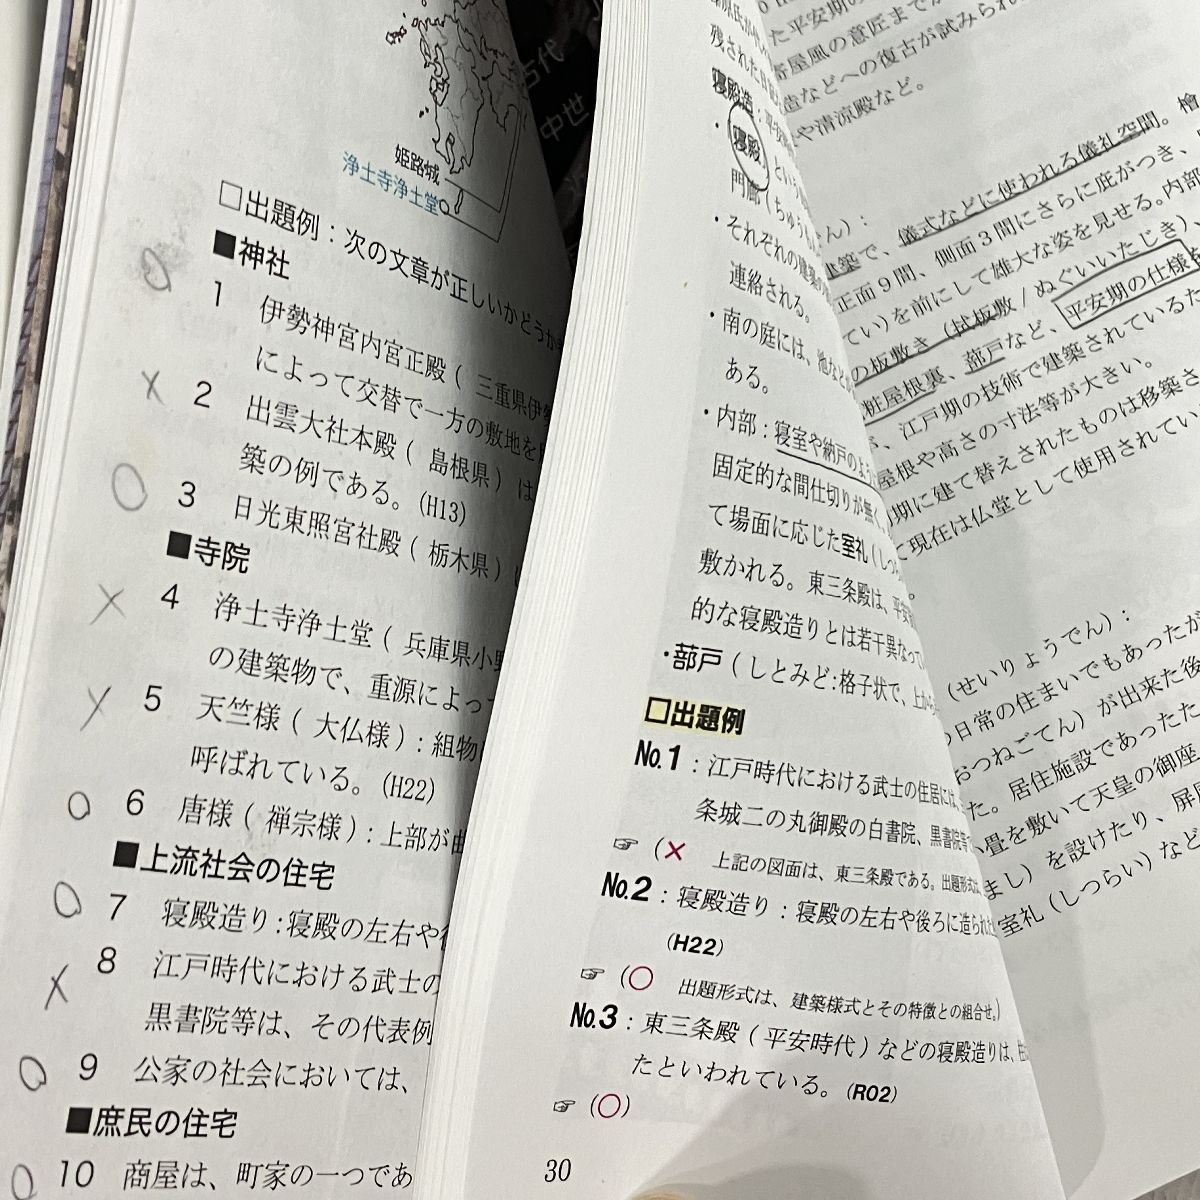 古代
中世
姫路城
浄土寺浄土堂
□出題例：次の文章が正しいかどうか
■神社
1 伊勢神宮内宮正殿（三重県伊勢
によって交替で一方の敷地を
2 出雲大社本殿（島根県）は
築の例である。(H13)
3 日光東照宮社殿（栃木県）
■寺院
4 浄土寺浄土堂（兵庫県小野
の建築物で、重源によっ
5 天竺様（大仏様）：組物
呼ばれている。(H22)
6 唐様（禅宗様）：上部が曲
■上流社会の住宅
7 寝殿造り：寝殿の左右や
8 江戸時代における武士の
黒書院等は、その代表例
9 公家の社会においては、
■庶民の住宅
10 商屋は、町家の一つであ
残された
寝殿造：
・寝殿 という
門廊（ちゅうも
・それぞれの建築の
連絡される。
・南の庭には、池など
ある。
・内部：寝室や納戸のよう
固定的な間仕切りが無く、
て場面に応じた室礼（しつ
敷かれる。東三条殿は、平安
的な寝殿造りとは若干異なって
・蔀戸（しとみど：格子状で、上から
□出題例
No.1：江戸時代における武士の住居には、
条城二の丸御殿の白書院、黒書院等
☞（× 上記の図面は、東三条殿である。出題形式は、
No.2：寝殿造り：寝殿の左右や後ろに造られた
(H22)
☞（○ 出題形式は、建築様式とその特徴との組合せ。）
No.3：東三条殿（平安時代）などの寝殿造りは、柱
たといわれている。(R02)
☞（○）
30
た平安期の
屋風の意匠まで
造などへの復古が試みられ
や清涼殿など。
ん）：
建築で、儀式などに使われる儀礼空間。檜
正面9間、側面3間にさらに庇がつき、
てい）を前にして雄大な姿を見せる。内部
の板敷き（拭板敷/ぬぐいいたじき）、
粧屋根裏、蔀戸など、平安期の仕様を
、江戸期の技術で建築されているた
屋根や高さの寸法等が大きい。
期に建て替えされたものは移築さ
て現在は仏堂として使用されてい
（せいりょうでん）：
日常の住まいでもあったが
おつねごてん）が出来た後
た。居住施設であったた
畳を敷いて天皇の御座
まし）を設けたり、屏
室礼（しつらい）など